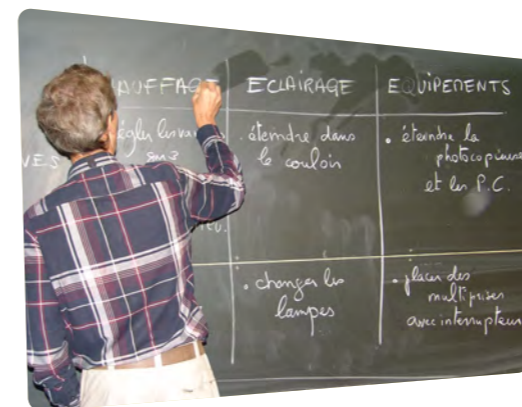 CHAUFFAGE ECLAIRAGE EQUIPEMENTS
VES
régler les vannes
sur 3
. éteindre dans
le couloir
• éteindre la
photocopieuse
et les P.C.
• changer les
lampes
• placer des
multiprises
avec interrupteur